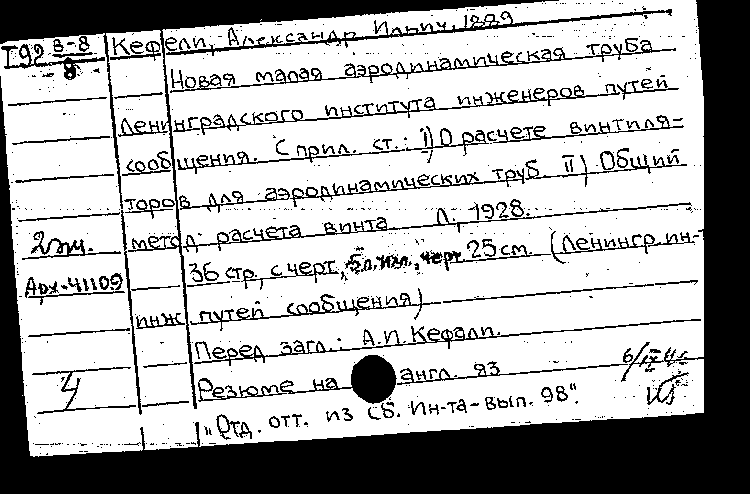 Т92 В-8
8
Кефели, Александр Ильич, 1889
Новая малая аэродинамическая труба
Ленинградского института инженеров путей
сообщения. С прил. ст.: I) О расчете винтиля-
торов для аэродинамических труб II) Общий
метод расчета винта Л., 1928.
2 эк.
36 стр., с черт., 5 л. илл., черт. 25 см. (Ленингр. ин-т
Арх-41109
инж. путей сообщения)
Перед загл.: А.И. Кефели.
Резюме на англ. яз
4
"Отд. отт. из Сб. Ин-та - вып. 98".